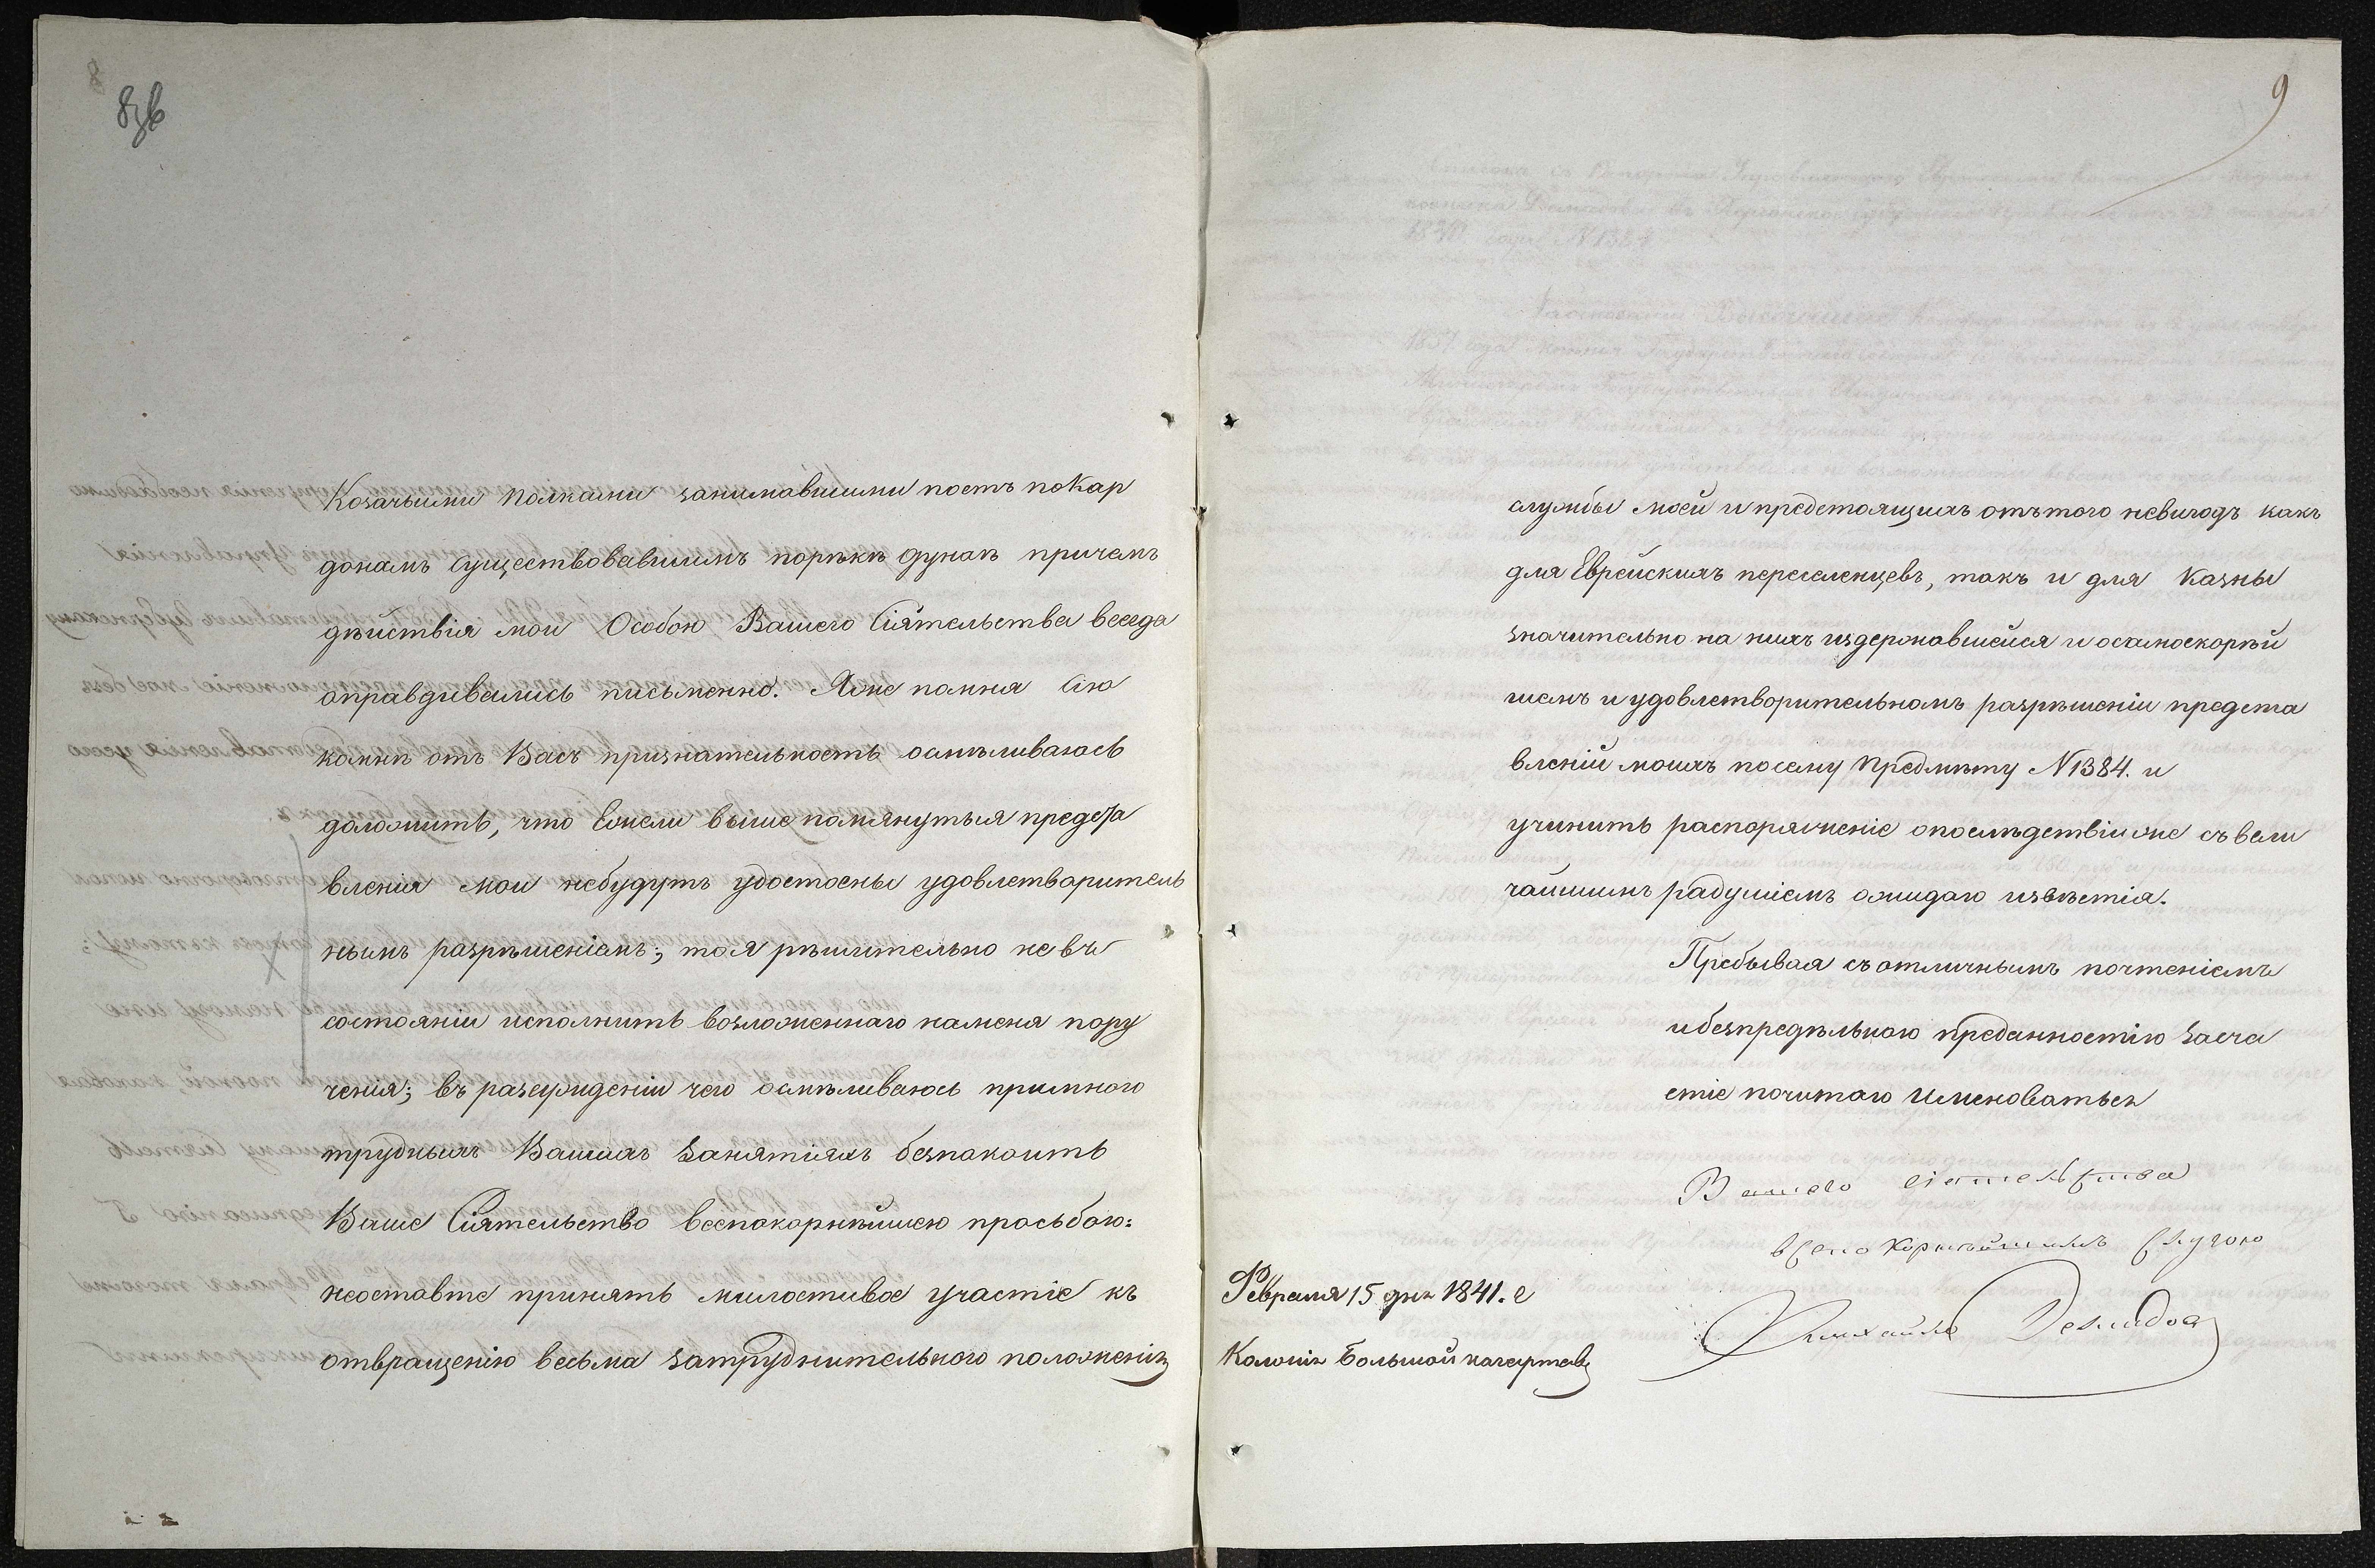 8зв
Козачьими полками занимавшими постъ покар
донамъ существовавшимъ порѣкѣ дунаѣ причемъ
дѣйствія мои Особою Вашего Сіятельства всегда
оправдивались письменно. Яже помня сію
комнѣ отъ Васъ признательность осмѣливаюсь
доложить, что Ежели выше помянутыя предста
вленія мои небудутъ удостоены удовлетваритель
нымъ разрѣшеніемъ; то я рѣшительно невъ
состояніи исполнить возложеннаго наменя пору
ченія; въ разсужденіи чего осмѣливаюсь примного
трудныхъ Вашихъ Занятіяхъ безпакоить
Ваше Сіятельство всепокорнѣйшею просьбою:
неоставте принять милостивое участіе къ
отвращенію весьма затруднительного положенія
9
службы моей и предстоящихъ отътого невигодъ какъ
для Еврейскихъ переселенцевъ, такъ и для казны
значительно на нихъ издержавшейся и осамоскорѣй
шемъ и удовлетворительномъ разрѣшеніи предста
вленій моихъ посему предмѣту N 1384. и
учинить распоряженіе опослѣдствіи же съ вели
чайшимъ радушіемъ ожидаю извѣстія.
Пребывая съ отличнымъ почтеніемъ
и безпредѣльною преданностію Засча
стіе почитаю именоваться
Вашего сіятельства
всепокорнѣйшимъ слугою
Демидовъ
Февраля 15 дня 1841. г
Колонія Большой нагартавъ